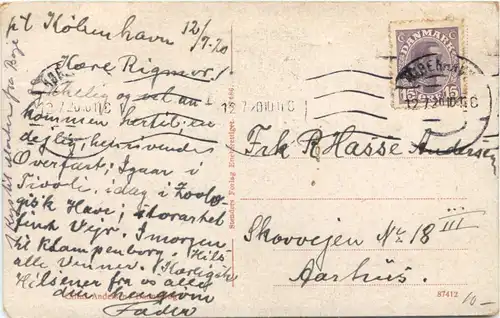 pt København 12/7-20
Kære Rigmor!
Lykkelig og vel an-
kommen hertil i en
dejlig henrivende
Overfart; Igaar i
Tivoli, idag i Zoolo-
gisk Have; Storartet
fint Vejr. I morgen
til Klampenborg. Hils
alle Venner. Kærligste
Hilsener fra os alle
din hengivne
Fader
Frk R Hasse Andersen
Skovvejen No 18 III
Aarhus.
DANMARK
15 15
12.7.20 10-11 C
12.7.20 10-11 C
Stenders Forlag Eneberettiget.
87412
10-